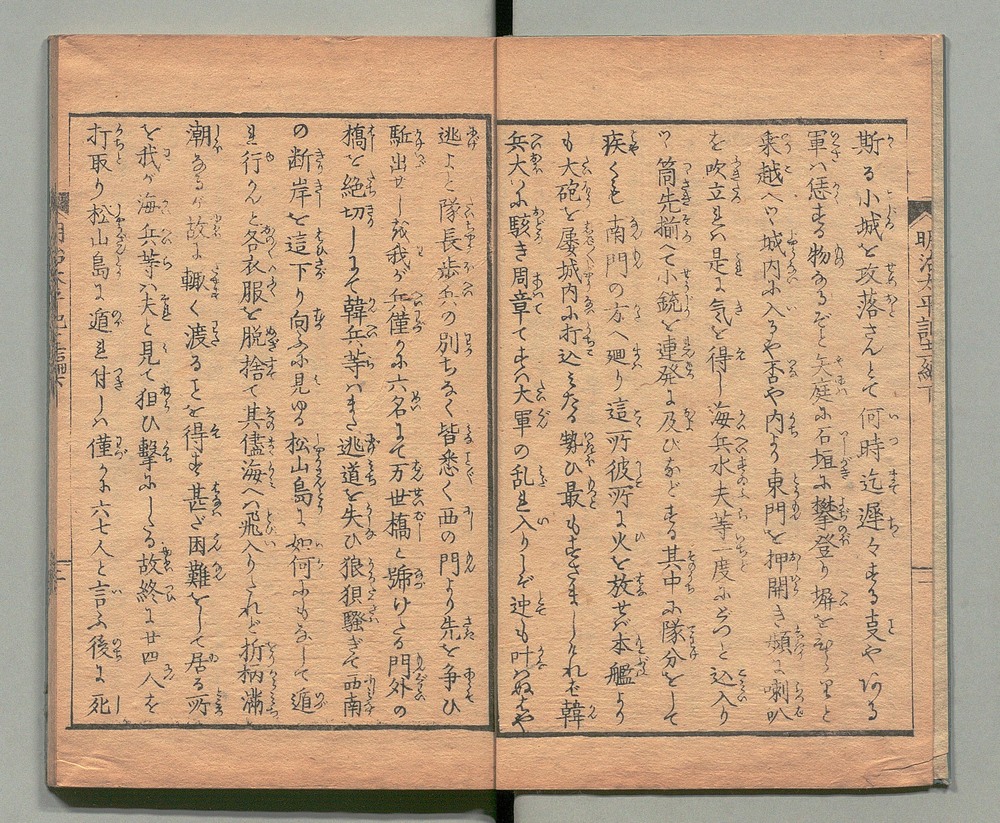 明治太平記十二編下
斯る小城を攻落さんとて何時迄遅々する支やはある
軍ハ恁する物なるぞと矢庭に石垣に攀登り塀をひらりと
乗越へつ城内に入るや否や内より東門を押開き頻に喇叭
を吹立れバ是に気を得し海兵水夫等一度にどつと込入り
つ筒先揃へて小銃を連発に及びなどする其中に隊分をして
疾くも南門の方へ廻り這所彼所に火を放せバ本艦より
も大砲を屡城内に打込みたる勢ひ最もすさましけれバ韓
兵大に駭き周章てすハ大軍の乱れ入りしぞ迚も叶はぬはや
逃よと隊長歩兵の別ちなく皆悉く西の門より先を争ひ
駈出せしを我が兵僅に六名にて万世橋と号けたる門外の
橋を絶切しにて韓兵等ハまた逃道を失ひ狼狽騒ぎて西南
の断岸を這下り向ふに見ゆる松山島に如何にもなして遁
れ行かんと各衣服を脱捨て其儘海へ飛入りたれど折柄満
潮なるが故に輙く渡ることを得す甚だ困難をして居る所
を我が海兵等ハ夫と見て狙ひ撃にしたる故終に廿四人を
打取り松山島に遁れ付しハ僅に六七人と言ふ後に死